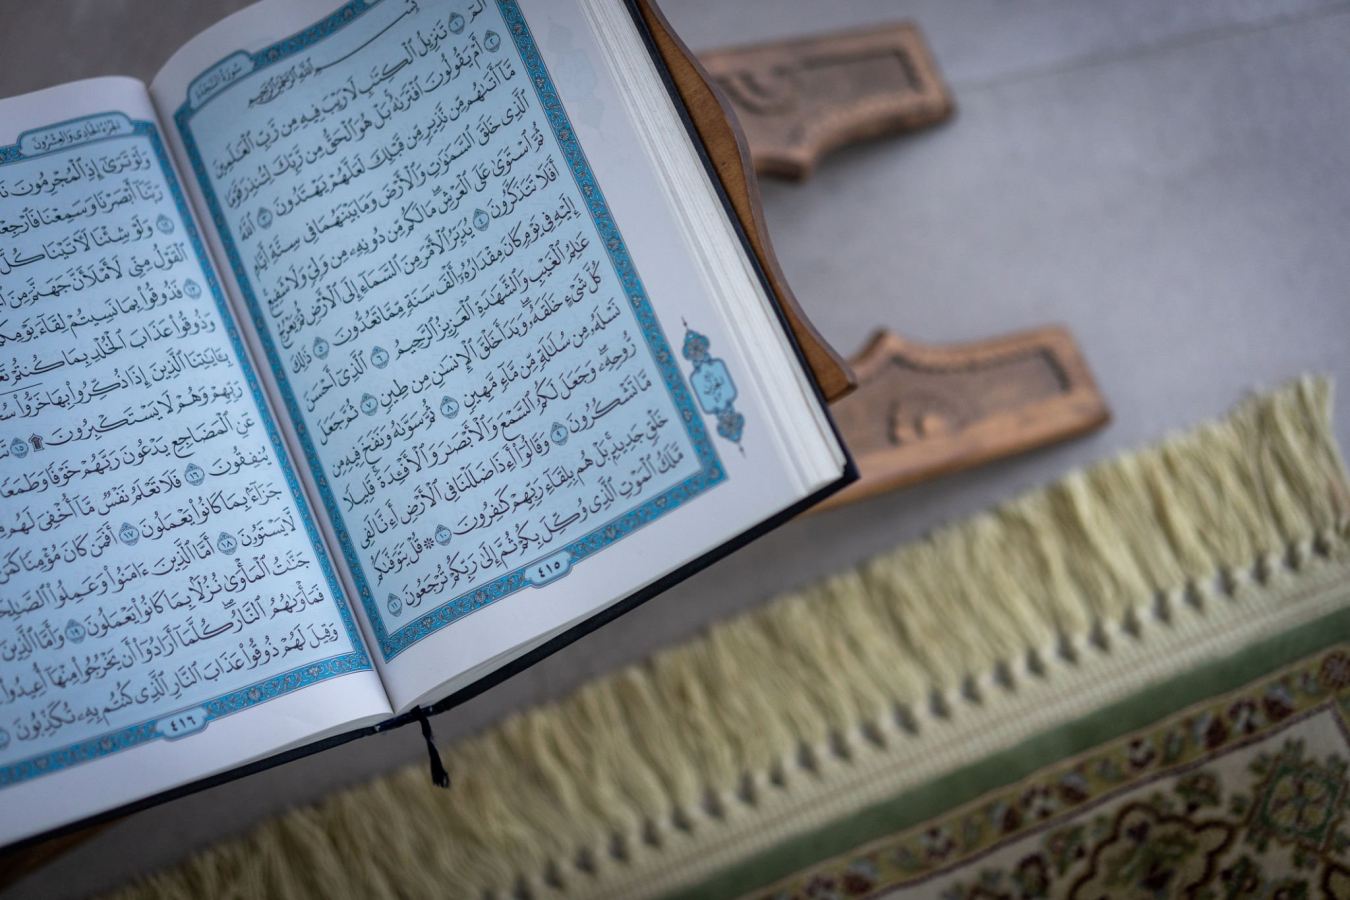 سُورَةُ السَّجْدَةِ
بِسْمِ ٱللَّهِ ٱلرَّحْمَٰنِ ٱلرَّحِيمِ
الٓمٓ ١ تَنزِيلُ ٱلْكِتَٰبِ لَا رَيْبَ فِيهِ مِن رَّبِّ ٱلْعَٰلَمِينَ
٢ أَمْ يَقُولُونَ ٱفْتَرَىٰهُ بَلْ هُوَ ٱلْحَقُّ مِن رَّبِّكَ لِتُنذِرَ قَوْمًا
مَّآ أَتَىٰهُم مِّن نَّذِيرٍ مِّن قَبْلِكَ لَعَلَّهُمْ يَهْتَدُونَ ٣ ٱللَّهُ
ٱلَّذِى خَلَقَ ٱلسَّمَٰوَٰتِ وَٱلْأَرْضَ وَمَا بَيْنَهُمَا فِى سِتَّةِ أَيَّامٍ
ثُمَّ ٱسْتَوَىٰ عَلَى ٱلْعَرْشِ مَا لَكُم مِّن دُونِهِۦ مِن وَلِىٍّ وَلَا شَفِيعٍ
أَفَلَا تَتَذَكَّرُونَ ٤ يُدَبِّرُ ٱلْأَمْرَ مِنَ ٱلسَّمَآءِ إِلَى ٱلْأَرْضِ ثُمَّ يَعْرُجُ
إِلَيْهِ فِى يَوْمٍ كَانَ مِقْدَارُهُۥٓ أَلْفَ سَنَةٍ مِّمَّا تَعُدُّونَ ٥ ذَٰلِكَ
عَٰلِمُ ٱلْغَيْبِ وَٱلشَّهَٰدَةِ ٱلْعَزِيزُ ٱلرَّحِيمُ ٦ ٱلَّذِىٓ أَحْسَنَ
كُلَّ شَىْءٍ خَلَقَهُۥ وَبَدَأَ خَلْقَ ٱلْإِنسَٰنِ مِن طِينٍ ٧ ثُمَّ جَعَلَ
نَسْلَهُۥ مِن سُلَٰلَةٍ مِّن مَّآءٍ مَّهِينٍ ٨ ثُمَّ سَوَّىٰهُ وَنَفَخَ فِيهِ مِن
رُّوحِهِۦ وَجَعَلَ لَكُمُ ٱلسَّمْعَ وَٱلْأَبْصَٰرَ وَٱلْأَفْـِٔدَةَ قَلِيلًا
مَّا تَشْكُرُونَ ٩ وَقَالُوٓا۟ أَءِذَا ضَلَلْنَا فِى ٱلْأَرْضِ أَءِنَّا لَفِى
خَلْقٍ جَدِيدٍۭ بَلْ هُم بِلِقَآءِ رَبِّهِمْ كَٰفِرُونَ ١٠ ۞ قُلْ يَتَوَفَّىٰكُم
مَّلَكُ ٱلْمَوْتِ ٱلَّذِى وُكِّلَ بِكُمْ ثُمَّ إِلَىٰ رَبِّكُمْ تُرْجَعُونَ ١١
٤١٥
الجُزْءُ الحَادِي وَالعِشْرُونَ
وَلَوْ تَرَىٰٓ إِذِ ٱلْمُجْرِمُونَ
رَبَّنَآ أَبْصَرْنَا وَسَمِعْنَا فَٱرْجِعْنَا
١٢ وَلَوْ شِئْنَا لَءَاتَيْنَا كُلَّ
ٱلْقَوْلُ مِنِّى لَأَمْلَأَنَّ جَهَنَّمَ مِنَ
١٣ فَذُوقُوا۟ بِمَا نَسِيتُمْ لِقَآءَ يَوْمِكُمْ
وَذُوقُوا۟ عَذَابَ ٱلْخُلْدِ بِمَا كُنتُمْ
بِـَٔايَٰتِنَا ٱلَّذِينَ إِذَا ذُكِّرُوا۟ بِهَا خَرُّوا۟
رَبِّهِمْ وَهُمْ لَا يَسْتَكْبِرُونَ ۩ ١٥
عَنِ ٱلْمَضَاجِعِ يَدْعُونَ رَبَّهُمْ خَوْفًا وَطَمَعًا
يُنفِقُونَ ١٦ فَلَا تَعْلَمُ نَفْسٌ مَّآ أُخْفِىَ لَهُم
جَزَآءًۢ بِمَا كَانُوا۟ يَعْمَلُونَ ١٧ أَفَمَن كَانَ مُؤْمِنًا كَمَن
لَّا يَسْتَوُۥنَ ١٨ أَمَّا ٱلَّذِينَ ءَامَنُوا۟ وَعَمِلُوا۟ ٱلصَّٰلِحَٰتِ
جَنَّٰتُ ٱلْمَأْوَىٰ نُزُلًۢا بِمَا كَانُوا۟ يَعْمَلُونَ ١٩ وَأَمَّا ٱلَّذِينَ
فَمَأْوَىٰهُمُ ٱلنَّارُ كُلَّمَآ أَرَادُوٓا۟ أَن يَخْرُجُوا۟ مِنْهَآ أُعِيدُوا۟
وَقِيلَ لَهُمْ ذُوقُوا۟ عَذَابَ ٱلنَّارِ ٱلَّذِى كُنتُم بِهِۦ تُكَذِّبُونَ
٤١٦